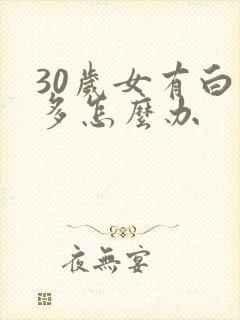 30歲女有白
多怎麼办
夜無宴